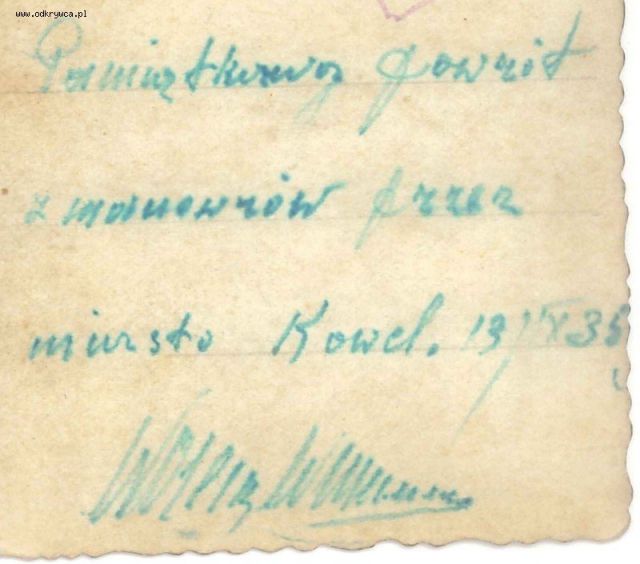 www.odkrywca.pl
Pamiątkowy powrót
z manewrów przez
miasto Kowel. 19/IX 36